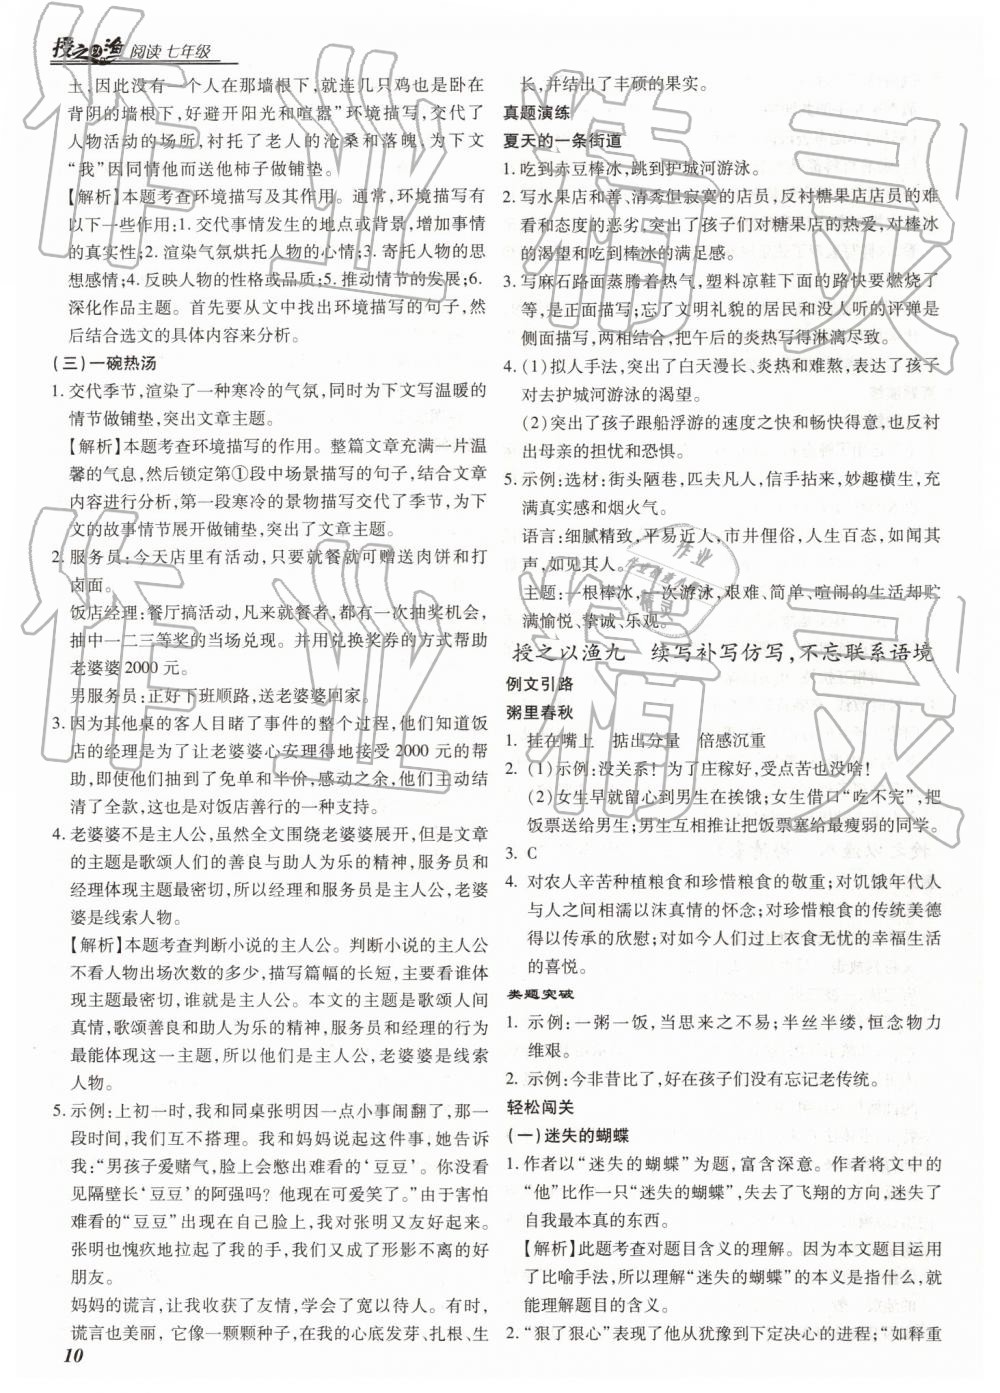 授之以渔 阅读 七年级
土,因此没有一个人在那墙根下,就连几只鸡也是卧在
背阴的墙根下,好避开阳光和喧嚣”环境描写,交代了
人物活动的场所,衬托了老人的沧桑和落魄,为下文
“我”因同情他而送他柿子做铺垫。
【解析】本题考查环境描写及其作用。通常,环境描写有
以下一些作用:1. 交代事情发生的地点或背景,增加事情
的真实性;2. 渲染气氛烘托人物的心情;3. 寄托人物的思
想感情;4. 反映人物的性格或品质;5. 推动情节的发展;6.
深化作品主题。首先要从文中找出环境描写的句子,然
后结合选文的具体内容来分析。
(三)一碗热汤
1. 交代季节,渲染了一种寒冷的气氛,同时为下文写温暖的
情节做铺垫,突出文章主题。
【解析】本题考查环境描写的作用。整篇文章充满一片温
馨的气息,然后锁定第①段中场景描写的句子,结合文章
内容进行分析,第一段寒冷的景物描写交代了季节,为下
文的故事情节展开做铺垫,突出了文章主题。
2. 服务员:今天店里有活动,只要就餐就可赠送肉饼和打
卤面。
饭店经理:餐厅搞活动,凡来就餐者,都有一次抽奖机会,
抽中一二三等奖的当场兑现。并用兑换奖券的方式帮助
老婆婆 2000 元。
男服务员:正好下班顺路,送老婆婆回家。
3. 因为其他桌的客人目睹了事件的整个过程,他们知道饭
店的经理是为了让老婆婆心安理得地接受 2000 元的帮
助,即使他们抽到了免单和半价,感动之余,他们主动结
清了全款,这也是对饭店善行的一种支持。
4. 老婆婆不是主人公,虽然全文围绕老婆婆展开,但是文章
的主题是歌颂人们的善良与助人为乐的精神,服务员和
经理体现主题最密切,所以经理和服务员是主人公,老婆
婆是线索人物。
【解析】本题考查判断小说的主人公。判断小说的主人公
不看人物出场次数的多少,描写篇幅的长短,主要看谁体
现主题最密切,谁就是主人公。本文的主题是歌颂人间
真情,歌颂善良和助人为乐的精神,服务员和经理的行为
最能体现这一主题,所以他们是主人公,老婆婆是线索
人物。
5. 示例:上初一时,我和同桌张明因一点小事闹翻了,那一
段时间,我们互不搭理。我和妈妈说起这件事,她告诉
我:“男孩子爱赌气,脸上会憋出难看的‘豆豆’。你没看
见隔壁长‘豆豆’的阿强吗?他现在可爱笑了。”由于害怕
难看的“豆豆”出现在自己脸上,我对张明又友好起来。
张明也愧疚地拉起了我的手,我们又成了形影不离的好
朋友。
妈妈的谎言,让我收获了友情,学会了宽以待人。有时,
谎言也美丽,它像一颗颗种子,在我的心底发芽、扎根、生
10
长,并结出了丰硕的果实。
真题演练
夏天的一条街道
1. 吃到赤豆棒冰,跳到护城河游泳。
2. 写水果店和善、清秀但寂寞的店员,反衬糖果店店员的难
看和态度的恶劣,突出了孩子们对糖果店的热爱,对棒冰
的渴望和吃到棒冰的满足感。
3. 写麻石路面蒸腾着热气,塑料凉鞋下面的路快要燃烧了
等,是正面描写;忘了文明礼貌的居民和没人听的评弹是
侧面描写,两者结合,把午后的炎热写得淋漓尽致。
4. (1)拟人手法,突出了白天漫长、炎热和难熬,表达了孩子
对去护城河游泳的渴望。
(2)突出了孩子跟船浮游的速度之快和畅快得意,也反衬
出母亲的担忧和恐惧。
5. 示例:选材:街头陋巷,匹夫凡人,信手拈来,妙趣横生,充
满真实感和烟火气。
语言:细腻精致,平易近人,市井俚俗,人生百态,如闻其
声,如见其人。
主题:一根棒冰,一次游泳,艰难、简单、喧闹的生活却贮
满愉悦、挚诚、乐观。
授之以渔九 续写补写仿写,不忘联系语境
例文引路
粥里春秋
1. 挂在嘴上 掂出分量 倍感沉重
2. (1)示例:没关系!为了庄稼好,受点苦也没啥!
(2)女生早就留心到男生在挨饿;女生借口“吃不完”,把
饭票送给男生;男生互相推让把饭票塞给最瘦弱的同学。
3. C
4. 对农人辛苦种植粮食和珍惜粮食的敬重;对饥饿年代人
与人之间相濡以沫真情的怀念;对珍惜粮食的传统美德
得以传承的欣慰;对如今人们过上衣食无忧的幸福生活
的喜悦。
类题突破
1. 示例:一粥一饭,当思来之不易;半丝半缕,恒念物力
维艰。
2. 示例:今非昔比了,好在孩子们没有忘记老传统。
轻松闯关
(一)迷失的蝴蝶
1. 作者以“迷失的蝴蝶”为题,富含深意。作者将文中的
“他”比作一只“迷失的蝴蝶”,失去了飞翔的方向,迷失了
自我最本真的东西。
【解析】此题考查对题目含义的理解。因为本文题目运用
了比喻手法,所以理解“迷失的蝴蝶”的本义是指什么,就
能理解题目的含义。
2. “狠了狠心”表现了他从犹豫到下定决心的进程;“如释重
作业精灵
作业精灵